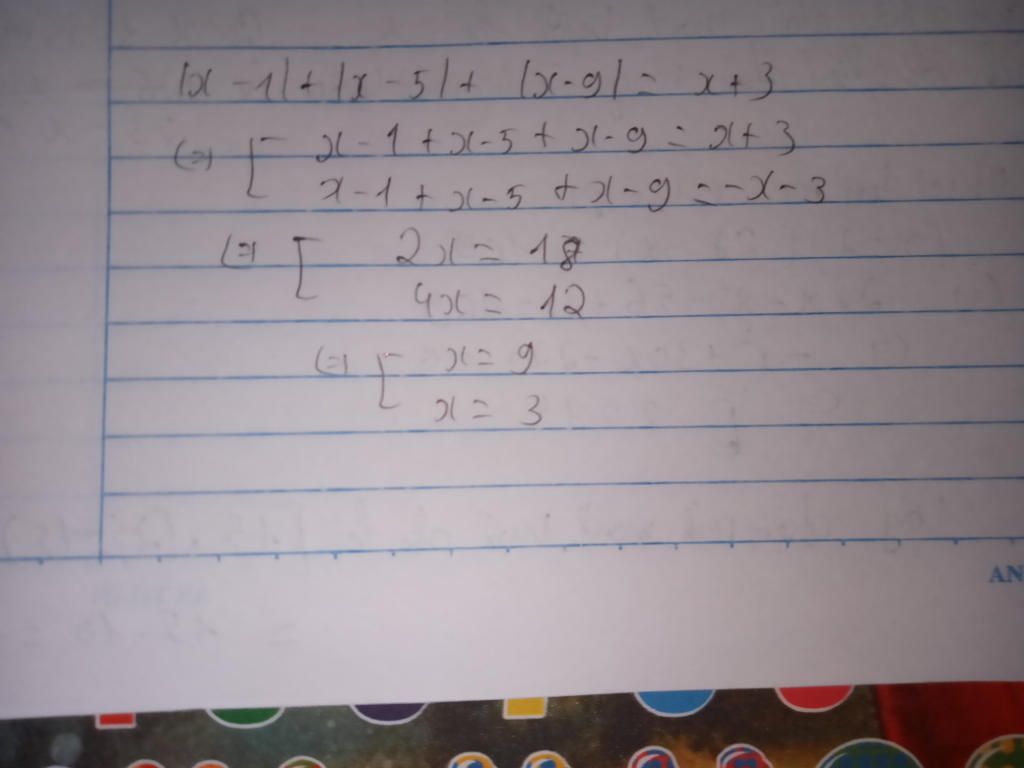 |x - 1| + |x - 5| + |x - 9| = x + 3
(=) [ x - 1 + x - 5 + x - 9 = x + 3
x - 1 + x - 5 + x - 9 = - x - 3
(=) [ 2x = 18
4x = 12
(=) [ x = 9
x = 3
AN